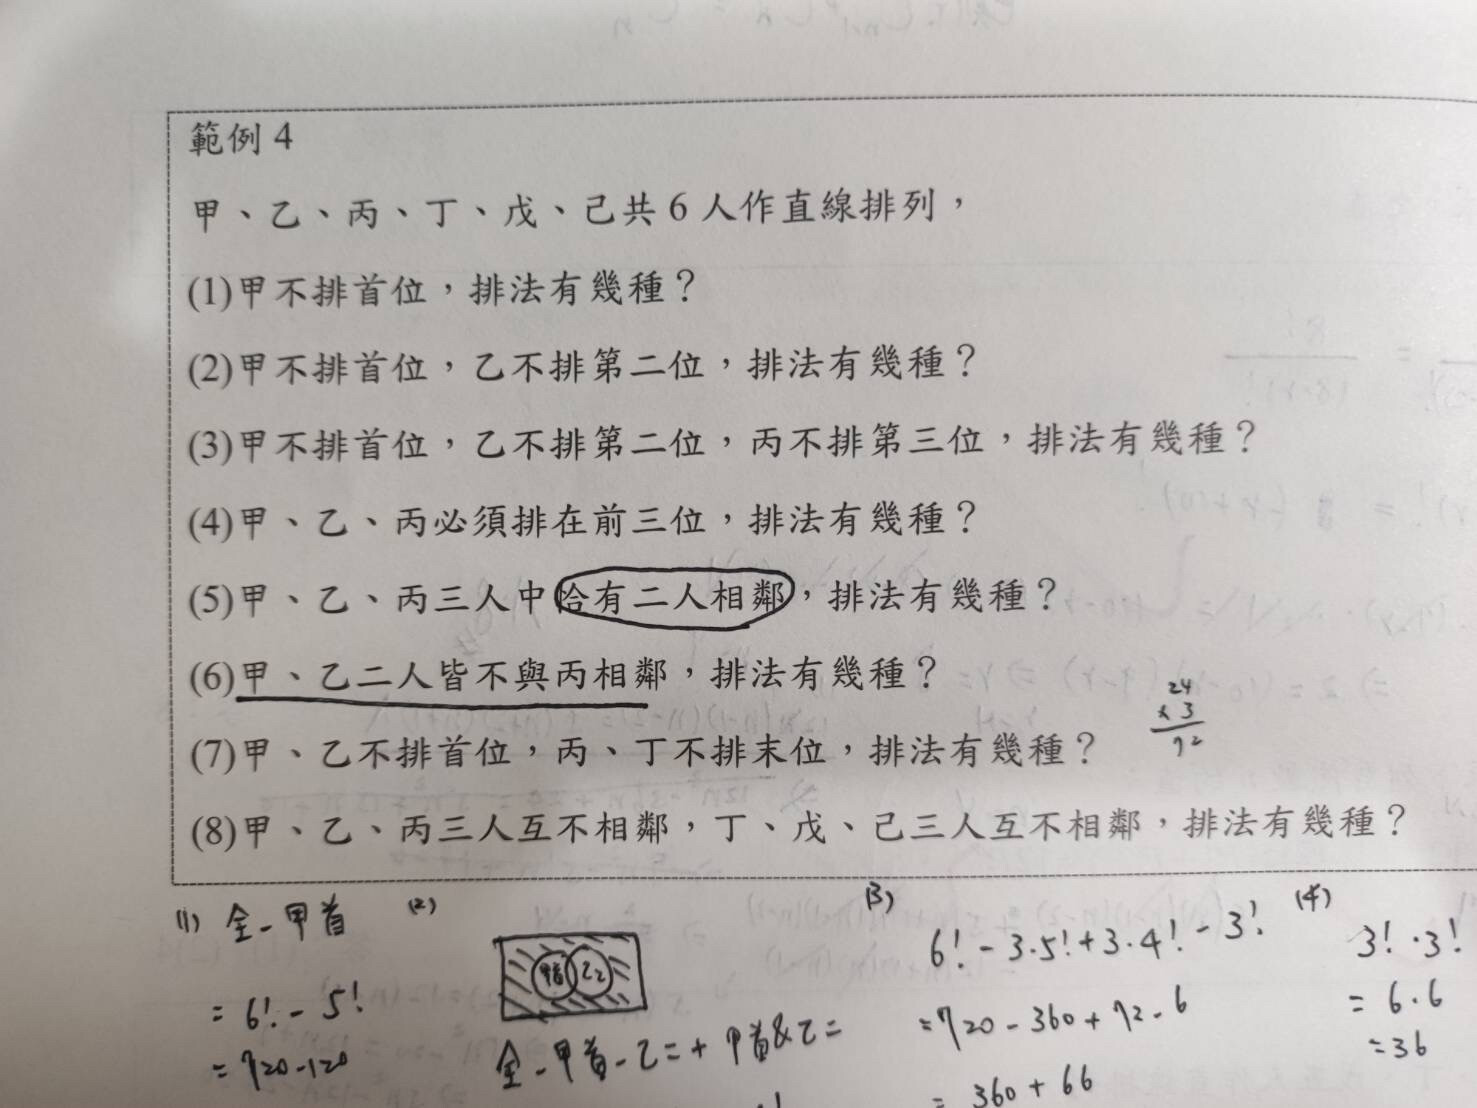 範例 4
甲、乙、丙、丁、戊、己共 6 人作直線排列，
(1)甲不排首位，排法有幾種？
(2)甲不排首位，乙不排第二位，排法有幾種？
(3)甲不排首位，乙不排第二位，丙不排第三位，排法有幾種？
(4)甲、乙、丙必須排在前三位，排法有幾種？
(5)甲、乙、丙三人中恰有二人相鄰，排法有幾種？
(6)甲、乙二人皆不與丙相鄰，排法有幾種？
24
× 3
72
(7)甲、乙不排首位，丙、丁不排末位，排法有幾種？
(8)甲、乙、丙三人互不相鄰，丁、戊、己三人互不相鄰，排法有幾種？
(1) 全-甲首
= 6! - 5!
= 720-120
(2)
甲首 乙2
全-甲首-乙二+甲首&乙二
(3)
6! - 3·5! + 3·4! - 3!
= 720 - 360 + 72 - 6
= 360 + 66
(4)
3! · 3!
= 6 · 6
= 36